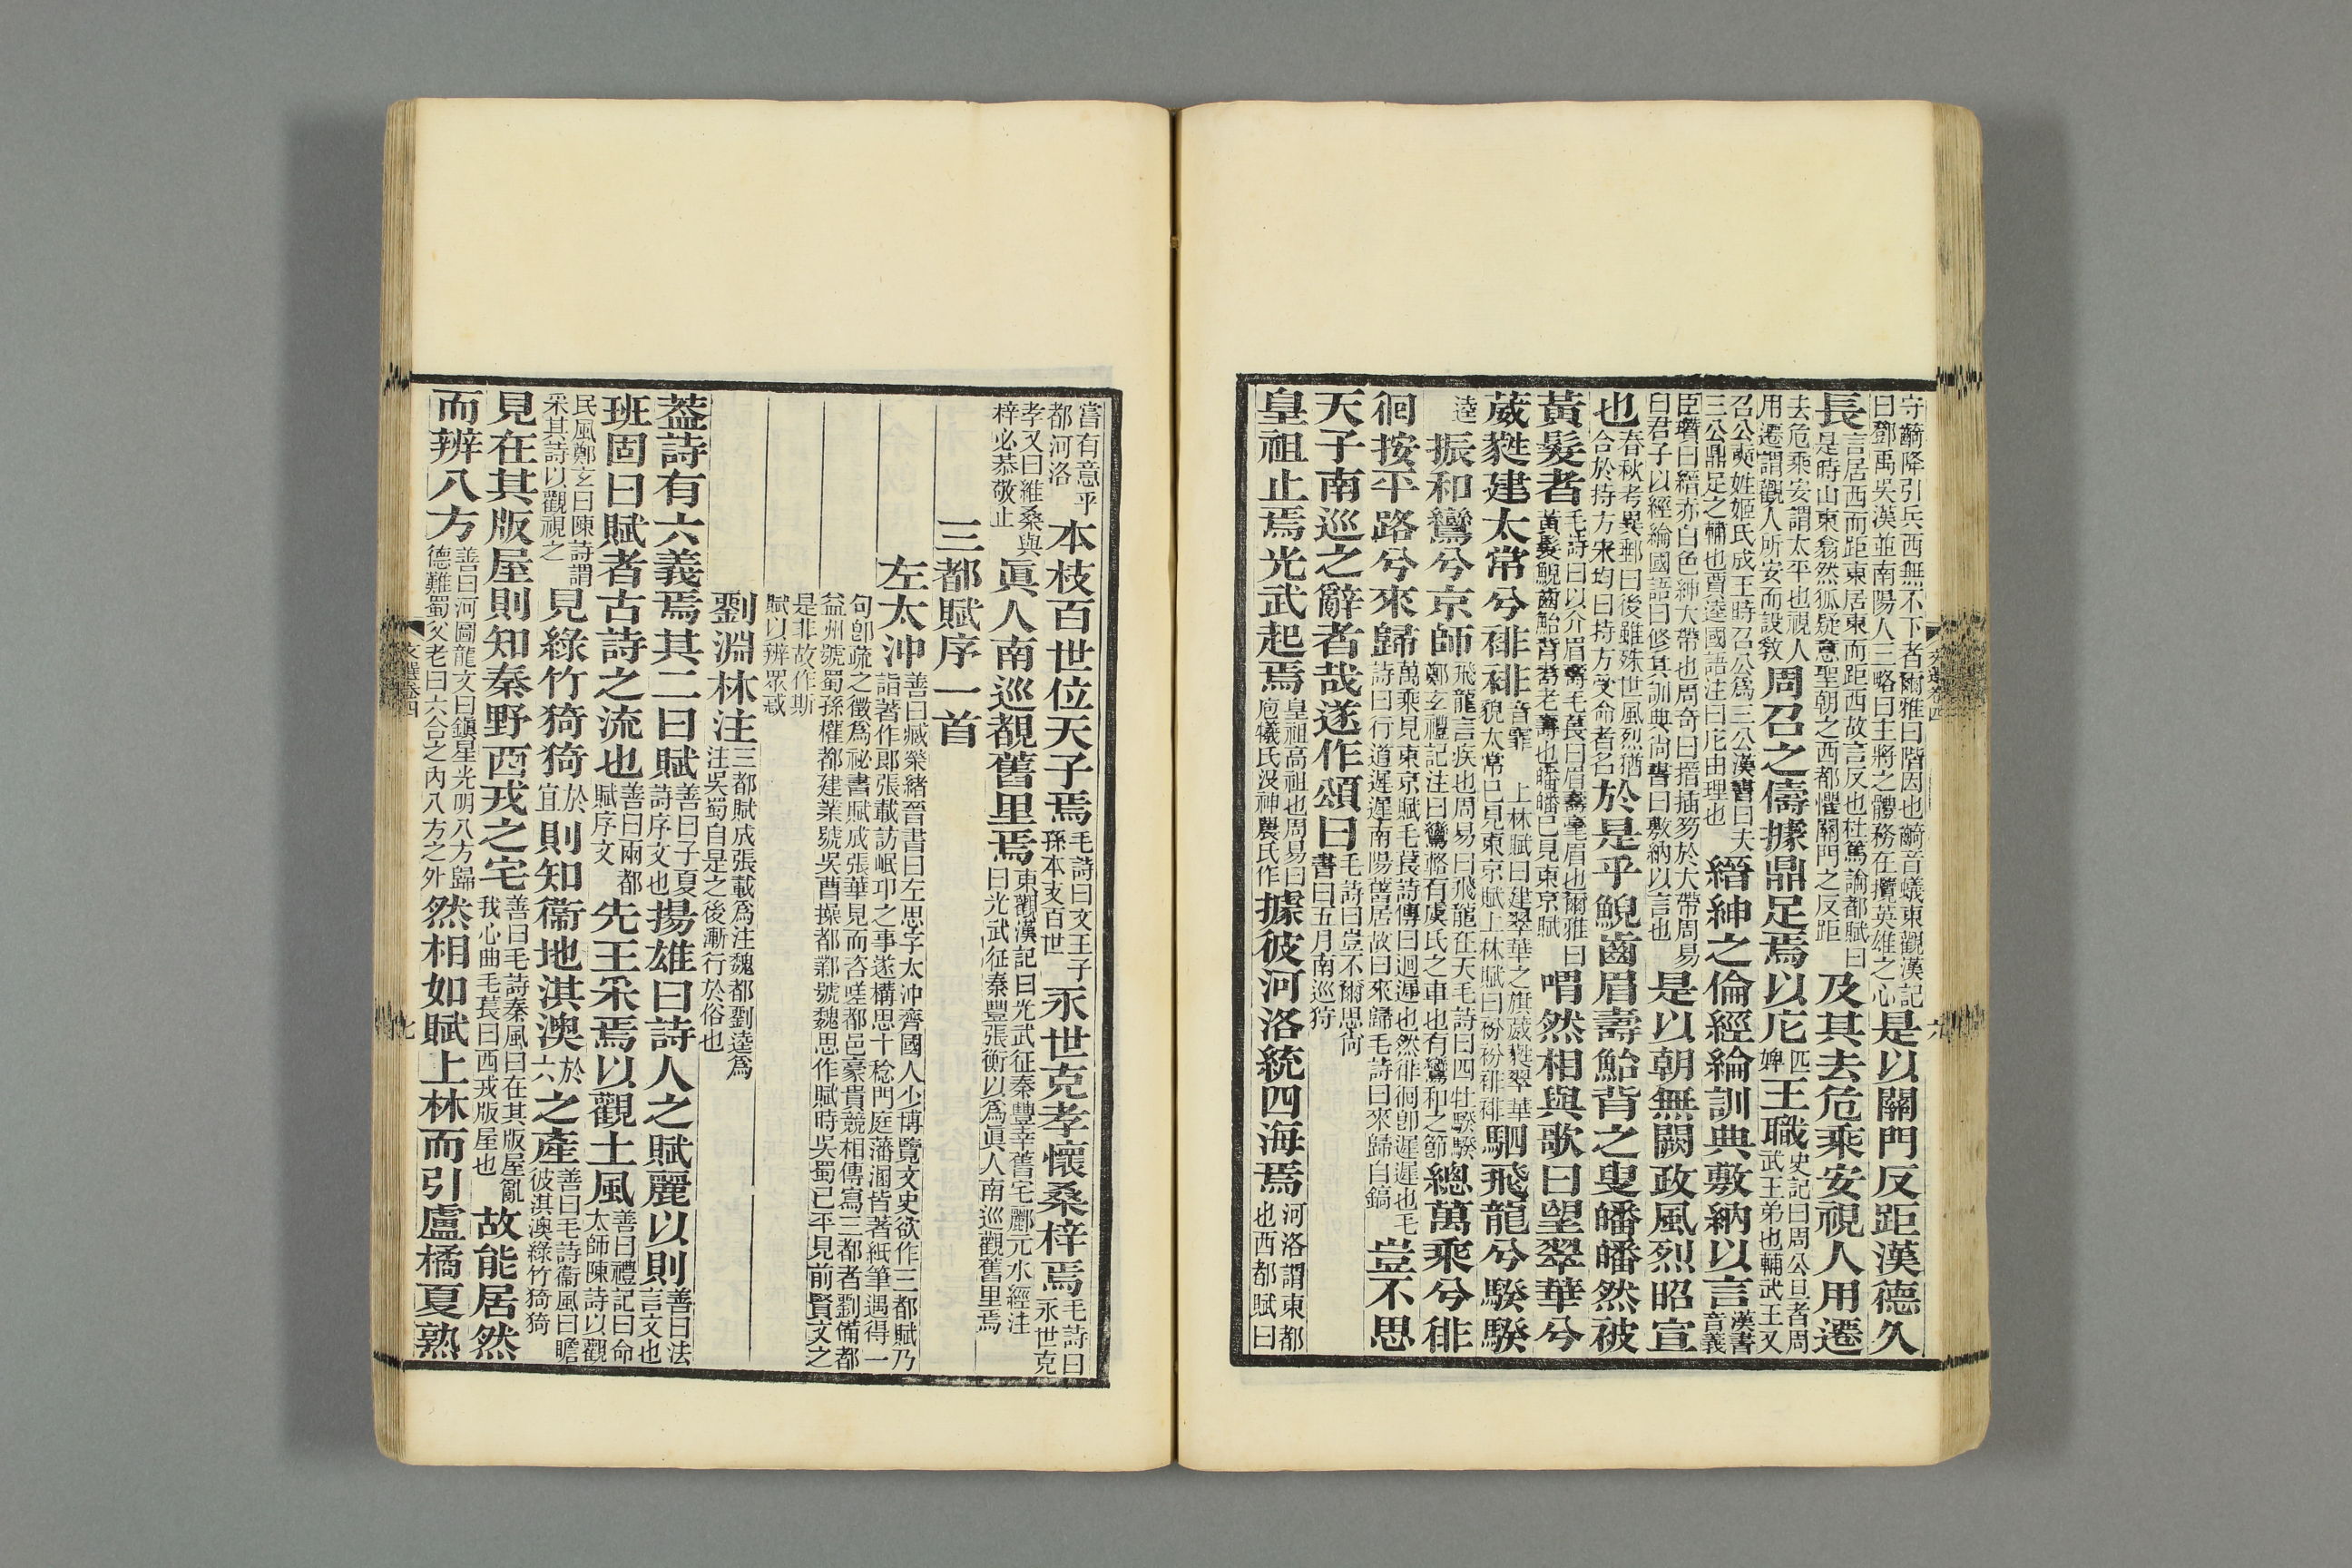 守齮降引兵西無不下者爾雅曰階因也齮音蟻東觀漢記
曰鄧禹吳漢並南陽人三略曰主將之體務在攬英雄之心
是以關門反距漢德久
長
言居西而距東居東而距西故言反也杜篤論都賦曰
是時山東翕然狐疑意聖朝之西都懼關門之反距
及其去危乘安視人用遷
去危乘安謂太平也視人
用遷謂觀人所安而設教
周召之儔據鼎足焉以庀
匹
婢
王職
史記曰周公旦者周
武王弟也輔武王又
召公奭姓姬氏成王時召公爲三公漢書曰夫
三公鼎足之輔也賈逵國語注曰庀由理也
縉紳之倫經綸訓典敷納以言
漢書
音義
臣瓚曰縉赤白色紳大帶也周奇曰搢插笏於大帶周易
曰君子以經綸國語曰修其訓典尙書曰敷納以言也
是以朝無闕政風烈昭宣
也
春秋考異郵曰後雖殊世風烈猶
合於持方宋均曰持方受命者名
於是乎鯢齒眉壽鮐背之叟皤皤然被
黃髮者
毛詩曰以介眉壽毛萇曰眉壽毫眉也爾雅曰
黃髮鯢齒鮐背耇老壽也皤皤已見東京賦
喟然相與歌曰望翠華兮
葳蕤建太常兮裶裶
音霏
上林賦曰建翠華之旗葳蕤翠華
貌太常已見東京賦上林賦曰衯衯裶裶
駟飛龍兮騤騤
逵
振和鸞兮京師
飛龍言疾也周易曰飛龍在天毛詩曰四牡騤騤
鄭玄禮記注曰鸞輅有虞氏之車也有鸞和之節
總萬乘兮徘
徊按平路兮來歸
萬乘見東京賦毛萇詩傳曰迴遲也然徘徊卽遲遲也毛
詩曰行道遲遲南陽舊居故曰來歸毛詩曰來歸自鎬
豈不思
天子南巡之辭者哉遂作頌曰
毛詩曰豈不爾思尙
書曰五月南巡狩
皇祖止焉光武起焉
皇祖高祖也周易曰
庖犧氏沒神農氏作
據彼河洛統四海焉
河洛謂東都
也西都賦曰
文選卷四
六
嘗有意乎
都河洛
本枝百世位天子焉
毛詩曰文王子
孫本支百世
永世克孝懷桑梓焉
毛詩曰
永世克
孝又曰維桑與
梓必恭敬止
眞人南巡覩舊里焉
東觀漢記曰光武征秦豐幸舊宅酈元水經注
曰光武征秦豐張衡以爲眞人南巡觀舊里焉
三都賦序一首
左太沖
善曰臧榮緒晉書曰左思字太沖齊國人少博覽文史欲作三都賦乃
詣著作郎張載訪岷邛之事遂構思十稔門庭藩溷皆著紙筆遇得一
句卽疏之徵爲祕書賦成張華見而咨嗟都邑豪貴競相傳寫三都者劉備都
益州號蜀孫權都建業號吳曹操都鄴號魏思作賦時吳蜀已平見前賢文之
是非故作斯
賦以辨眾惑
劉淵林注
三都賦成張載爲注魏都劉逵爲
注吳蜀自是之後漸行於俗也
葢詩有六義焉其二曰賦
善曰子夏
詩序文也
揚雄曰詩人之賦麗以則
善曰法
言文也
班固曰賦者古詩之流也
善曰兩都
賦序文
先王采焉以觀土風
善曰禮記曰命
太師陳詩以觀
民風鄭玄曰陳詩謂
采其詩以觀視之
見綠竹猗猗
於
宜
則知衞地淇澳
於
六
之產
善曰毛詩衞風曰瞻
彼淇澳綠竹猗猗
見在其版屋則知秦野西戎之宅
善曰毛詩秦風曰在其版屋亂
我心曲毛萇曰西戎版屋也
故能居然
而辨八方
善曰河圖龍文曰鎭星光明八方歸
德難蜀父老曰六合之內八方之外
然相如賦上林而引盧橘夏熟
文選卷四
七